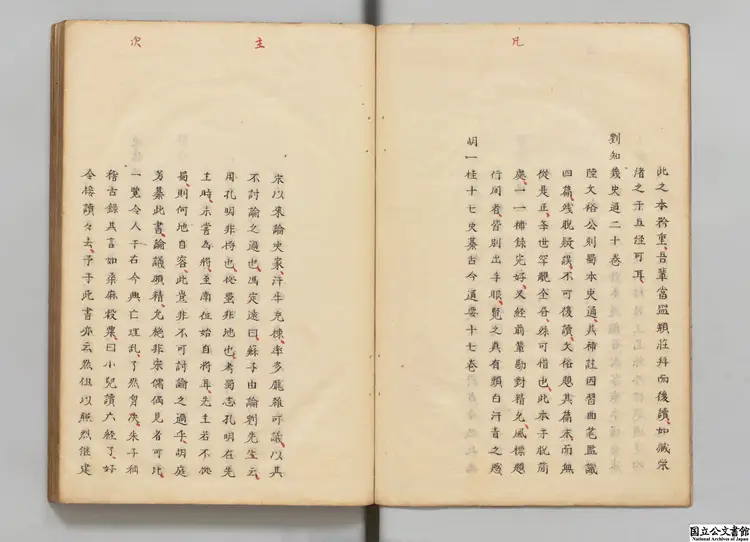 凡
此之本矜重、吾輩當盥頮莊拜而後讀、如緘
諸之于五經可耳、
劉知幾史通二十卷
陸文裕公刻蜀本史通、其補註因習曲筆鑑識
四篇、殘脫疑誤、不可復讀、文裕題其篇末、而無
從是正、舉世罕覯全書、殊可惜也、此本于脫簡
處、一一補錄完好、又經前輩勘對精允、風標題
行間者、皆別出手眼、覽之真有頭白汗青之感
胡一桂十七史纂古今通要十七卷
主
次
宋以來論史家、汗牛充棟、率多龐雜可議、以其
不討論之過也、馮定遠曰、蘇子由論劉先主云、
用孔明非將也、從置非地也、考蜀志孔明在先
主時、未嘗為將、至南征始自將耳、先主若不從
蜀、則何地自容、此豈非不可討論之過乎、胡庭
芳纂此書、論議頗精允、絕非宋儒偶見者可比、
一覽令人于古今興亡理亂、了然胷次、朱子稱
稽古錄其言如桑麻穀粟、曰小兒讀六經了、好
令接讀々去、予于此書亦云然、但以照烈繼建
国立公文書館
National Archives of Japan